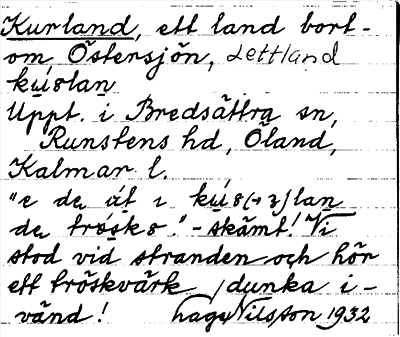 Kurland, ett land bort-
om Östersjön, Lettland
kúslan
Uppt. i Bredsättra sn,
Runstens hd, Öland,
Kalmar l.
"e de út i kús(-z)lan
de trösks." - skämt! Vi
stod vid stranden och hör
ett tröskvärk dunka i-
vänd! Nilsson 1932